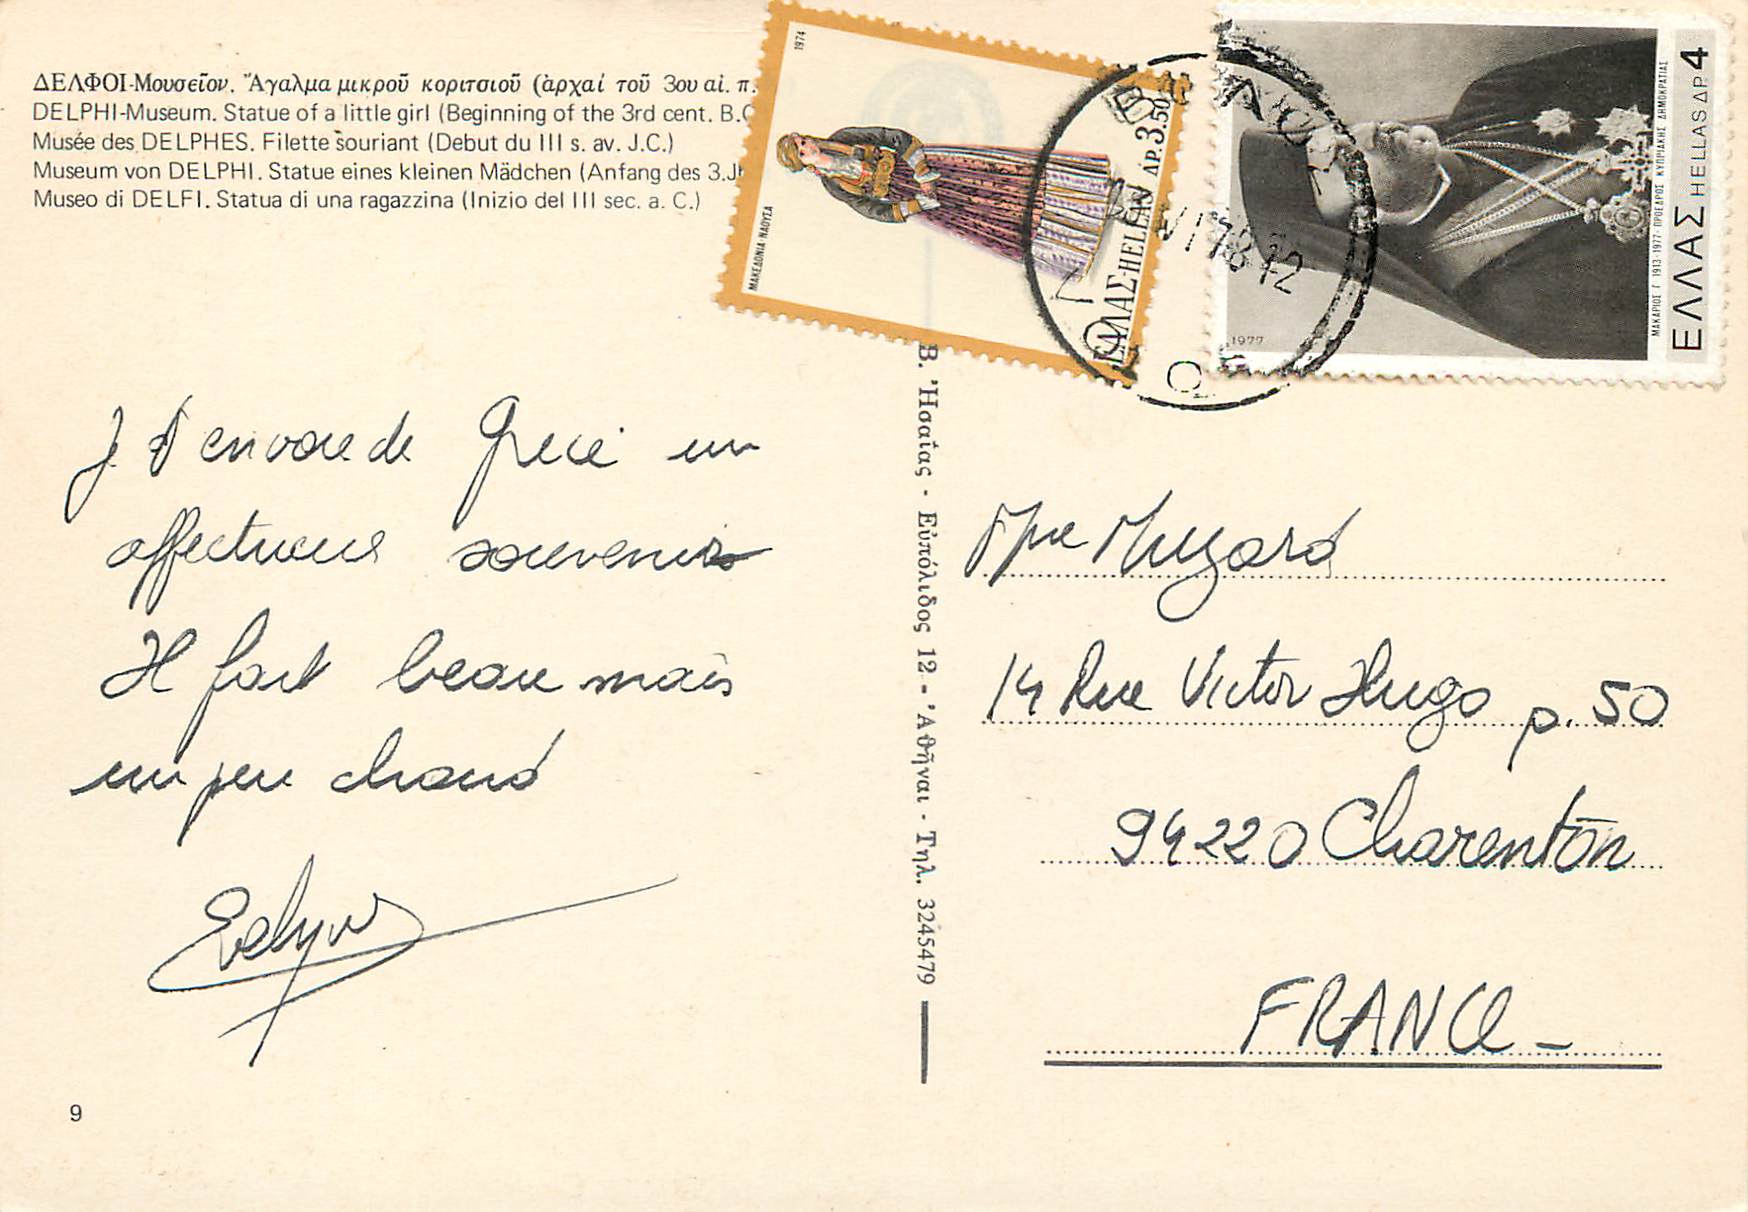 ΔΕΛΦΟΙ-Μουσεῖον. Ἄγαλμα μικροῦ κοριτσιοῦ (ἀρχαί τοῦ 3ου αἰ. π.
DELPHI-Museum. Statue of a little girl (Beginning of the 3rd cent. B.C
Musée des DELPHES. Filette souriant (Debut du III s. av. J.C.)
Museum von DELPHI. Statue eines kleinen Mädchen (Anfang des 3.Jh
Museo di DELFI. Statua di una ragazzina (Inizio del III sec. a. C.)
1974
ΜΑΚΕΔΟΝΙΑ-ΝΑΟΥΣΑ
ΕΛΛΑΣ-HELLAS ΔΡ. 3.50
1977
ΜΑΚΑΡΙΟΣ Γ 1913-1977-ΠΡΟΕΔΡΟΣ ΚΥΠΡΙΑΚΗΣ ΔΗΜΟΚΡΑΤΙΑΣ
ΕΛΛΑΣ HELLAS ΔΡ 4
J t'envoie de Grece un
affectueux souvenir
Il fait beau mais
un peu chaud
Evelyne
9
Β. Ἠσαΐας - Εὐπόλιδος 12 - Ἀθῆναι - Τηλ. 3245479
Mme Muzard
14 Rue Victor Hugo p. 50
94220 Charenton
FRANCE -